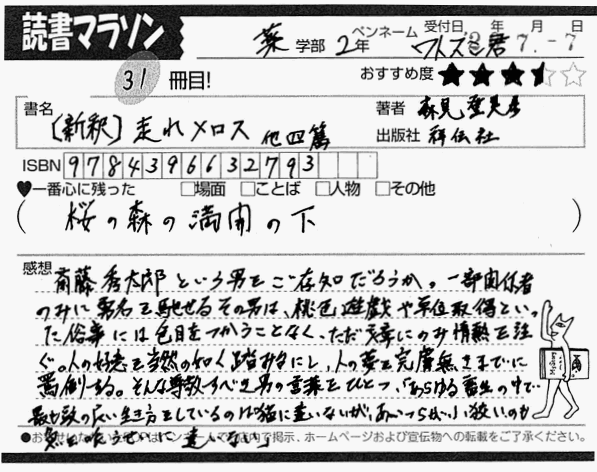 読書マラソン
薬 学部 2年 ペンネーム ワトスン君 受付日 年 月 日 7.-7
31 冊目! おすすめ度 ★★★
書名 〔新釈〕走れメロス 他四篇
著者 森見登美彦
出版社 祥伝社
ISBN 9784396632793
♥一番心に残った □場面 □ことば □人物 □その他
( 桜の森の満開の下 )
感想 斎藤秀太郎という男をご存知だろうか。一部関係者
のみに勇名を馳せるその男は、桃色遊戯や単位取得といっ
た俗事には色目をつかうことなく、ただ文章にのみ情熱を注
ぐ。人の好意を当然の如く踏みにじり、人の夢を完膚無きまでに
罵倒する。そんな尊敬すべき男の言葉をひとつ、「あらゆる畜生の中で
最も頭の良い生き方をしているのは猫に違いないが、あいつらめ、」
に違いない」
ペンネームで店内で掲示、ホームページおよび宣伝物への転載をご了承ください。